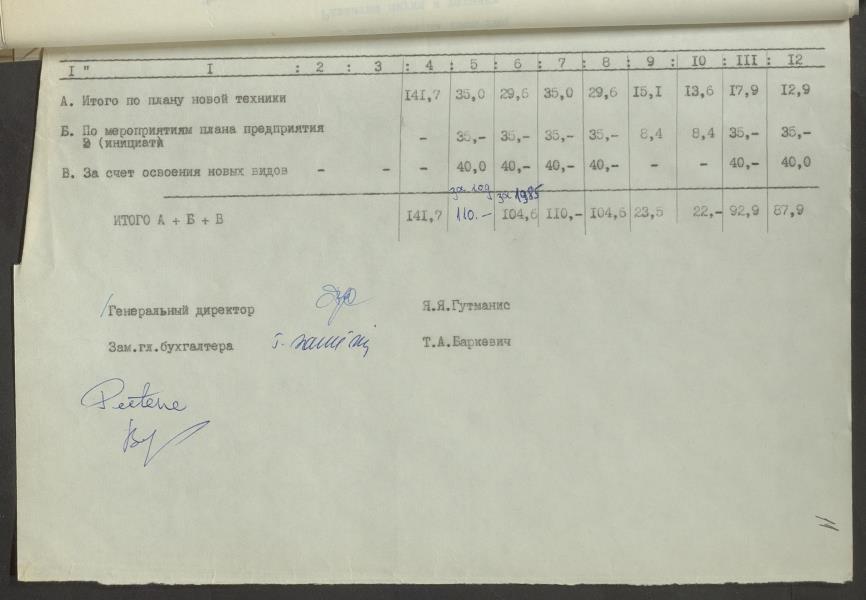 I " I : 2 : 3 : 4 : 5 : 6 : 7 : 8 : 9 : IO : III : I2
А. Итого по плану новой техники I4I,7 35,0 29,6 35,0 29,6 I5,I I3,6 I7,9 I2,9
Б. По мероприятиям плана предприятия - 35,- 35,- 35,- 35,- 8,4 8,4 35,- 35,-
(инициати
В. За счет освоения новых видов - - - 40,0 40,- 40,- 40,- - - 40,- 40,0
за год за 1985
ИТОГО А + Б + В I4I,7 110.- I04,6 IIO,- I04,6 23,5 22,- 92,9 87,9
Генеральный директор Я.Я.Гутманис
Зам.гл.бухгалтера Т.А.Баркевич